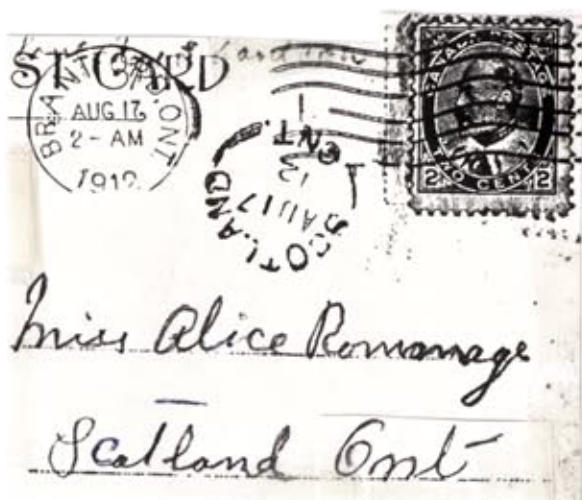 ST CARD
BRANTFORD, ONT.
AUG 17
2 - AM
1912
SCOTLAND
AU 17
12
ONT.
CANADA POSTAGE
2 TWO CENTS 2
Miss Alice Rommage
Scotland Ont